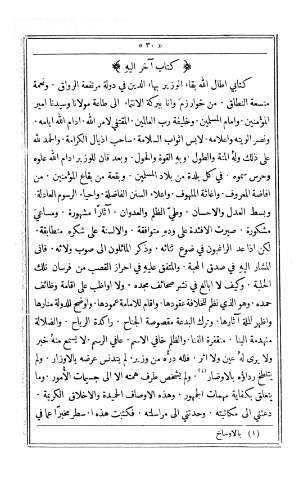 « ٣٠ »
﴿ كتاب آخر اليه ﴾
كتابى اطال الله بقاء الوزير بهاء الدين فى دولة مرتفعة الرواق . ونعمة
متسعة النطاق . من خوارزم وانا ببركة الانتماء الى طاعة مولانا وسيدنا امير
المؤمنين . وامام المسلمين . وخليفة رب العالمين . المقتفى لامر الله . ادام الله ايامه .
ونصر الويته واعلامه . لابس اثواب السلامة . ساحب اذيال الكرامة . والحمد لله
على ذلك وله المنة والطول . وبه القوة والحول . وبعد فان للوزير ادام الله علوه
وحرس سموه . فى كل بلدة من بلاد المسلمين . وبقعة من بقاع المؤمنين . من
افاضة المعروف . واغاثة الملهوف . واعلاء السنن الفاضلة . واحياء الرسوم العادلة .
وبسط العدل والاحسان . وطى الظلم والعدوان . آثارا مشهورة . ومساعى
مشكورة . صيرت الافئدة على ودّه متوافقة . والالسنة على شكره متطابقة .
لكن اذا عد الراغبون فى ضوع ثنائه . وذكر المائلون الى صوب ولائه . فانى
المشار اليه فى صدق المحبة . والمتفق عليه فى احراز القصب من فرسان تلك
الحلبة . وكيف لا ابالغ فى نشر صحائف مجده . ولا اواظب على اقامة وظائف
حمده . وهو الذى نظم للخلافة عقودها . واقام للامامة عمودها . واوضح للدولة منارها
واظهر للملة آثارها . وترك البدعة مقصوصة الجناح . راكدة الرياح . والضلالة
منهدمة البنا . مقفرة الفنا . والظلم خافى الاسم . عافى الرسم . لا يسمع منه خبر
ولا يرى له عين ولا اثر . فلله درّه من وزير . لم يتدنس عرضه بالاوزار . ولم
يتلطخ رداؤه بالاوضار (١) . ولم يشخص طرف همته الا الى جسيمات الأمور . وما
يتعلق بكفاية مهمات الجمهور . وهذه الاوصاف الحميدة والاخلاق الكريمة .
دعتنى الى مكاتبته . وحدتنى الى مراسلته . فكتبت هذه الاسطر مخبرا عما فى
(١) بالاوساخ